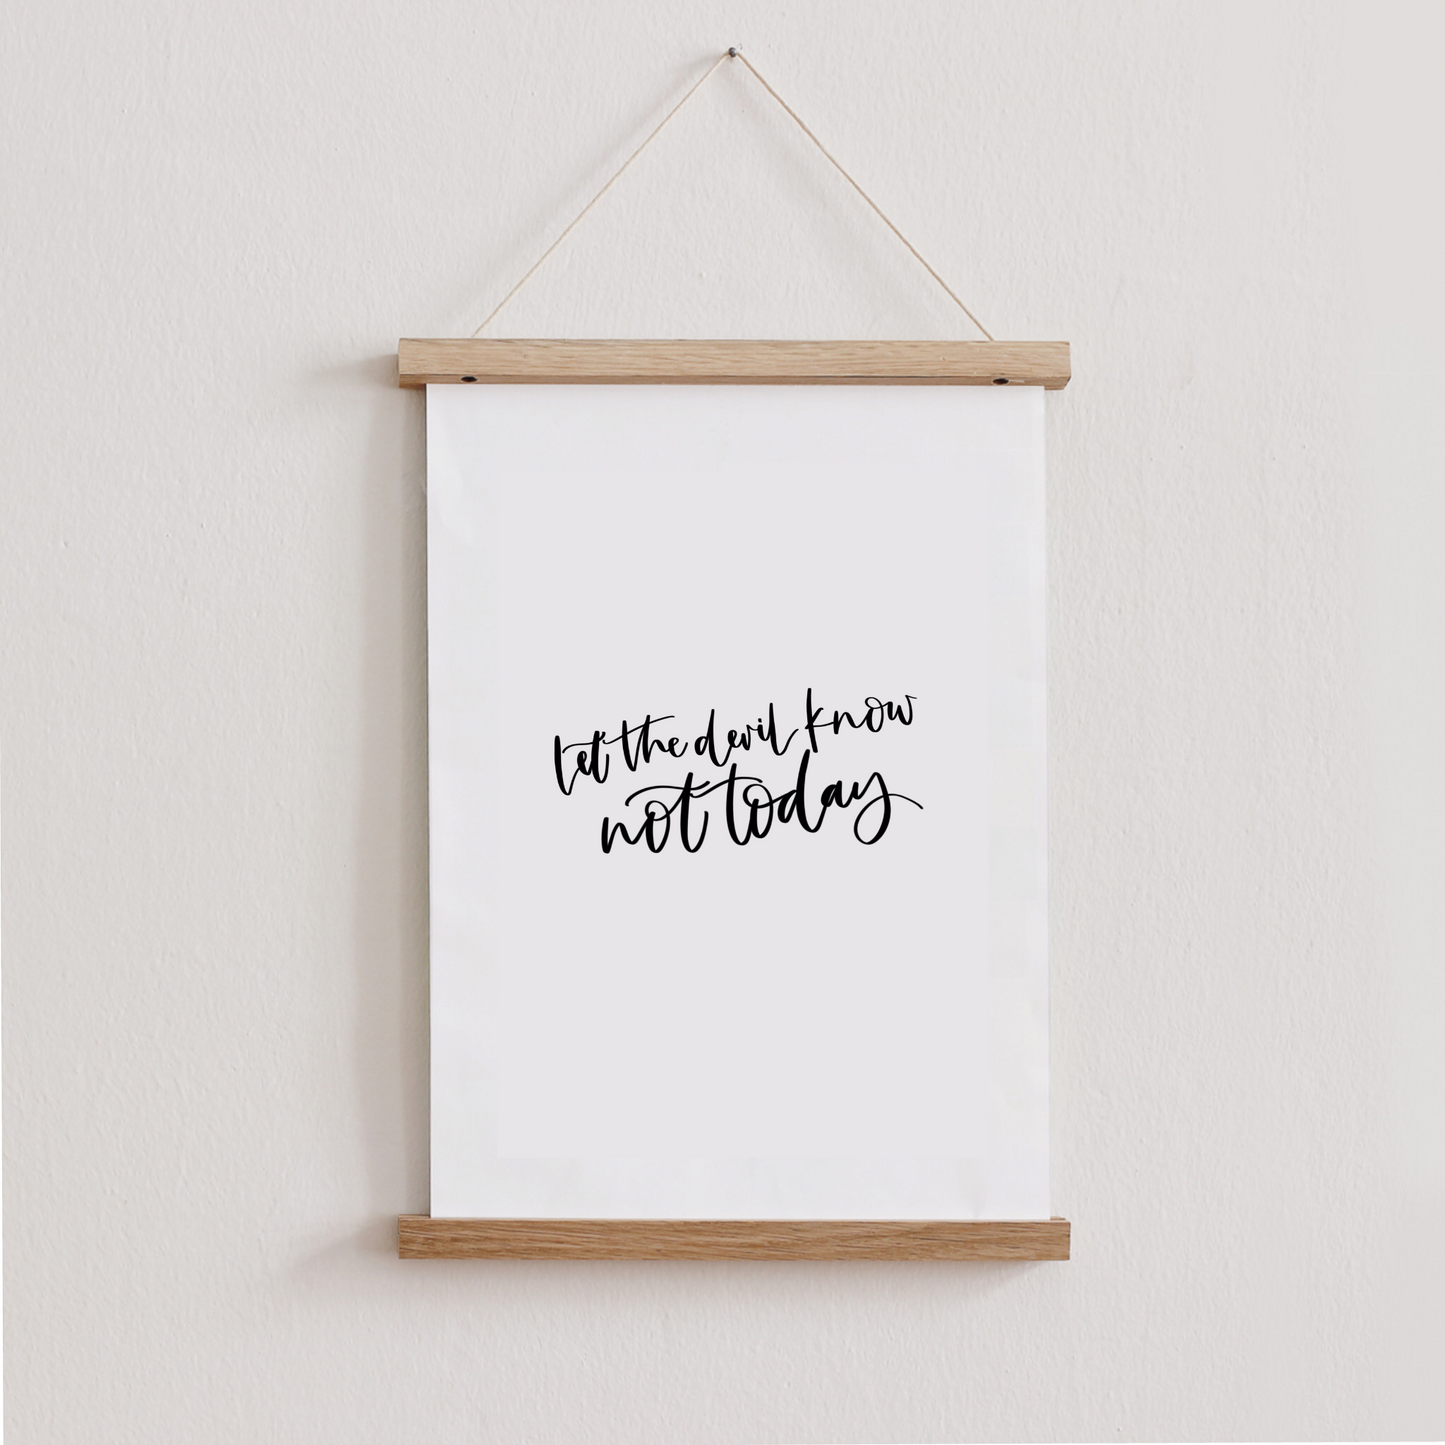 let the devil know
not today